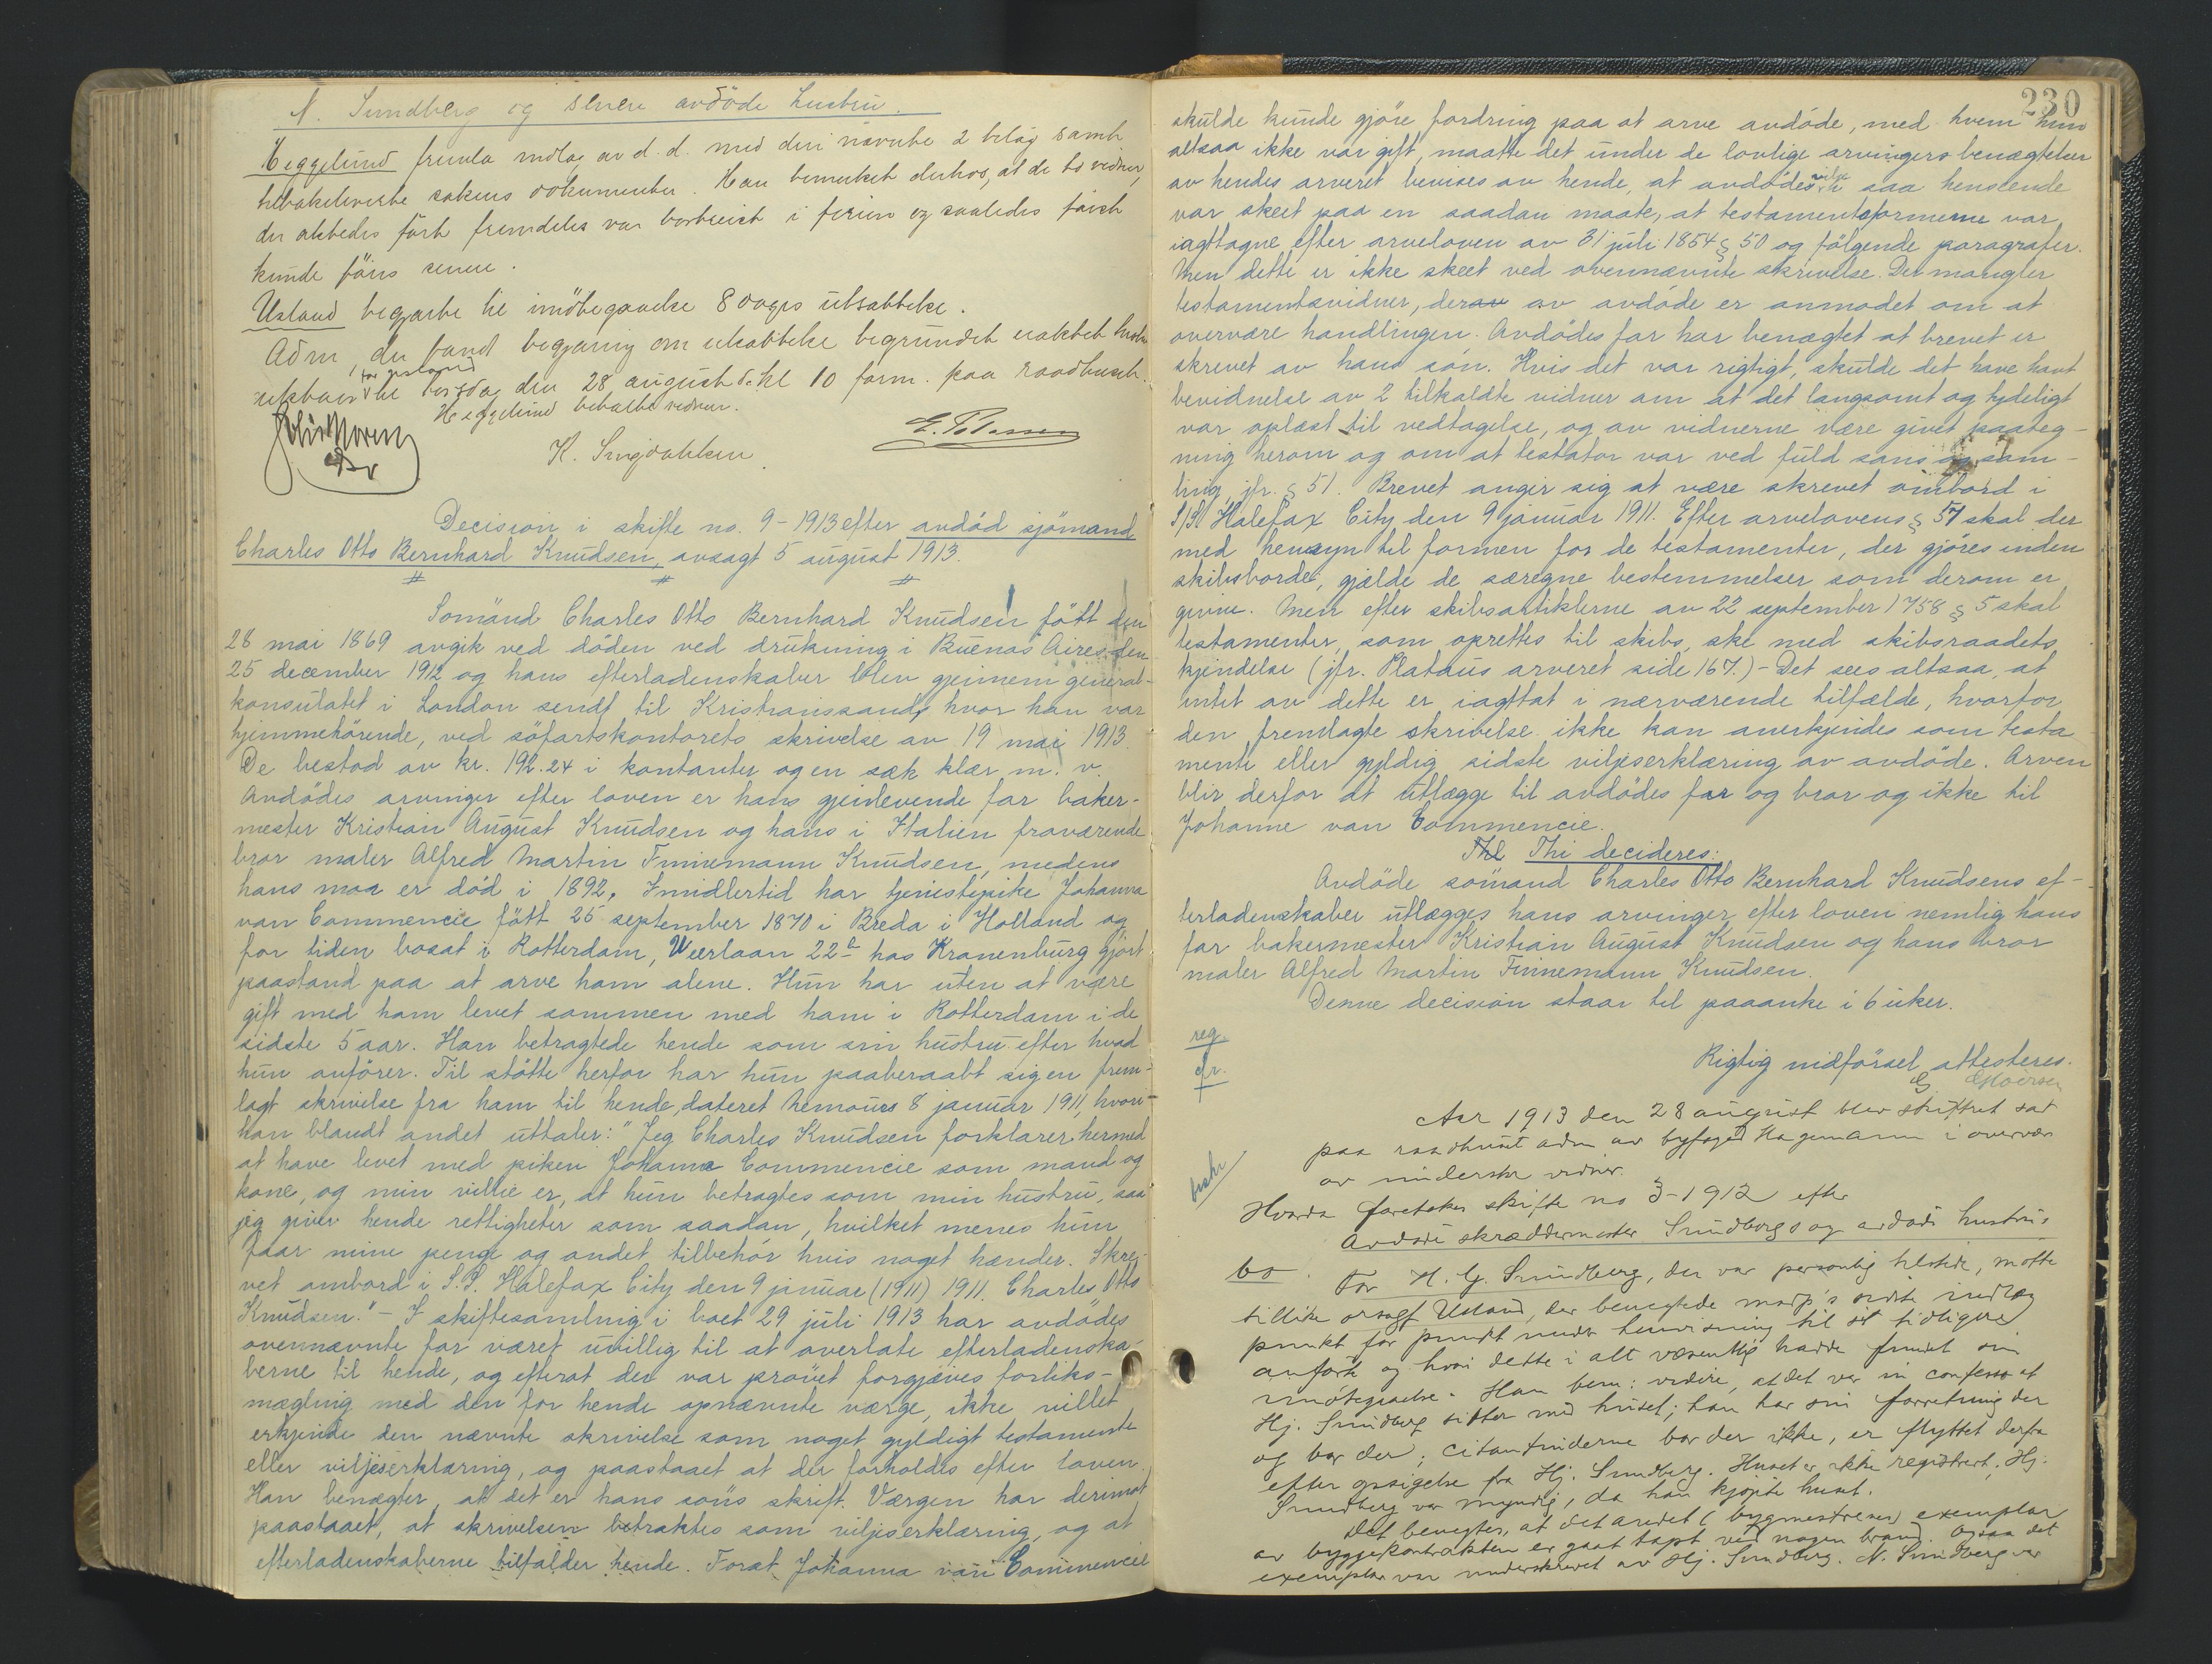 N. Sundberg og senere avdöde hustru.
Heggelund fremla indlæg av d. d. med deri nævnte 2 bilag samt
tilbakeleverte sakens dokumenter. Han bemerket derhos, at de to vidner,
der aktedes ført fremdeles var bortreist i ferien og saaledes først
kunde föres senere.
Usland begjærte til imötegaaelse 8 dages utsættelse.
Adm, der fand begjæring om utsættelse begrundet utsatte
for gestand
til torsdag den 28 august d. kl 10 form. paa raadhuset.
Heggelund beholdt vidner.
K. Singdahlsen
Decision i skifte no. 9-1913 efter avdöd sjömand
Charles Otto Bernhard Knudsen, avsagt 5 august 1913.
Sömand Charles Otto Bernhard Knudsen född den
28 mai 1869 avgik ved döden ved drukning i Buenos Aires den
25 december 1912 og hans efterladenskaber blev gjennem general-
konsulatet i London sendt til Kristianssand, hvor han var
hjemmehörende, ved söfartskontorets skrivelse av 19 mai 1913.
De bestod av kr. 192.24 i kontanter og en sæk klær m. v.
Avdödes arvinger efter loven er hans gjenlevende far baker-
mester Kristian August Knudsen og hans i Italien fraværende
bror maler Alfred Martin Finnemann Knudsen, medens
hans moa er död i 1892. Imidlertid har tjenestepike Johanna
van Commencie fött 25 september 1870 i Breda i Holland og
for tiden bosat i Rotterdam, Weerlaan 22 hos Kranenburg gjort
paastand paa at arve ham alene. Hun har uten at være
gift med ham levet sammen med ham i Rotterdam i de
sidste 5 aar. Han betragtede hende som sin hustru efter hvad
hun anförer. Til stötte herfor har hun paaberaabt sig en frem-
lagt skrivelse fra ham til hende, dateret Nemours 8 januar 1911, hvori
han blandt andet uttaler: "Jeg Charles Knudsen forklarer hermed
at have levet med piken Johanna Commencie som mand og
kone, og min villie er, at hun betragtes som min hustru, saa
jeg giver hende rettigheter som saadan, hvilket menes hun
faar mine penge og andet tilbehör hvis noget hænder. Skre-
vet ombord i S.S. Halefax City den 9 januar (1911) 1911. Charles Otto
Knudsen." - I skiftesamling i boet 29 juli 1913 har avdödes
ovennævnte far været uvillig til at overlate efterladenska-
berne til hende, og efterat der var prövet forgjæves forliks-
mægling med den for hende opnævnte værge, ikke villet
erkjende den nævnte skrivelse som noget gyldigt testamente
eller viljeserklæring, og paastaaet at der forholdes efter loven.
Han benægter, at det er hans söns skrift. Værgen har derimot
paastaaet, at skrivelsen betraktes som viljeserklæring, og at
efterladenskaberne tilfalder hende. Forat Johanna van Commencie
230
skulde kunde gjöre fordring paa at arve avdöde, med hvem hun
altsaa ikke var gift, maatte det under de lovlige arvingers benægtelser
av hendes arveret bevises av hende, at avdödes vilje saa henseende
var skeet paa en saadan maate, at testamentsformerne var
iagttagne efter arveloven av 31 juli 1854 § 50 og fölgende paragrafer.
Men dette er ikke skeet ved ovennævnte skrivelse. Der mangler
testamentsvidner, derav av avdöde er anmodet om at
overvære handlingen. Avdödes far har benægtet at brevet er
skrevet av hans sön. Hvis det var rigtigt, skulde det have havt
bevidnelse av 2 tilkaldte vidner om at det langsomt og tydeligt
var oplæst til vedtagelse, og av vidnerne være givet paateg-
ning herom og om at testator var ved fuld sans og sam-
ling, jfr. § 51. Brevet angir sig at være skrevet ombord i
S/S Halefax City den 9 januar 1911. Efter arvelovens § 57 skal der
med hensyn til formen for de testamenter, der gjöres inden
skibsborde, gjælde de særegne bestemmelser som derom er
givne. Men efter skibsartiklerne av 22 september 1758 § 5 skal
testamenter, som oprettes til skibs, ske med skibsraadets
kjendelse (jfr. Plataus arveret side 167.) - Det sees altsaa, at
intet av dette er iagttat i nærværende tilfælde, hvorfor
den fremlagte skrivelse ikke kan anerkjendes som testa
mente eller gyldig sidste viljeserklæring av avdöde. Arven
blir derfor at utlægge til avdödes far og bror og ikke til
Johanne van Commencie.
Thi decideres:
Avdöde sömand Charles Otto Bernhard Knudsens ef-
terladenskaber utlægges hans arvinger efter loven nemlig hans
far bakermester Kristian August Knudsen og hans bror
maler Alfred Martin Finnemann Knudsen.
Denne decision staar til paaanke i 6 uker.
reg.
Rigtig nidförsel attesteres.
Aar 1913 den 28 august blev skifteret sat
paa raadhuset adm av byfoged Hagemann i overvær
av underskr vidner.
Hvorda foretokes skifte no 3-1912 efter
Avdöde skræddermester Sundbergs og avdöde hustrus
bo. For H. G. Sundberg, der var personlig tilstede, mötte
tillike orsagf Usland, der benegtede modp's sidste indlæg
punkt for punkt under henvisning til sit tidligere
anförte og hvori dette i alt væsentlig hadde fundet sin
imötegaaelse. Han bem: videre, at det var in confesso at
Hj. Sundberg sitter med huset; han har sin forretning der
og bor der; citantinderne bor der ikke, er flyttet derfra
efter opsigelse fra Hj. Sundberg. Huset er ikke registrert. Hj.
Sundberg var myndig, da han kjöpte huset.
Det benegtes, at det andet (bygmesterens) exemplar
av byggekontrakten er gaat tapt ved nogen brand. Ogsaa det
exemplar var underskrevet av Hj. Sundberg. N. Sundberg var